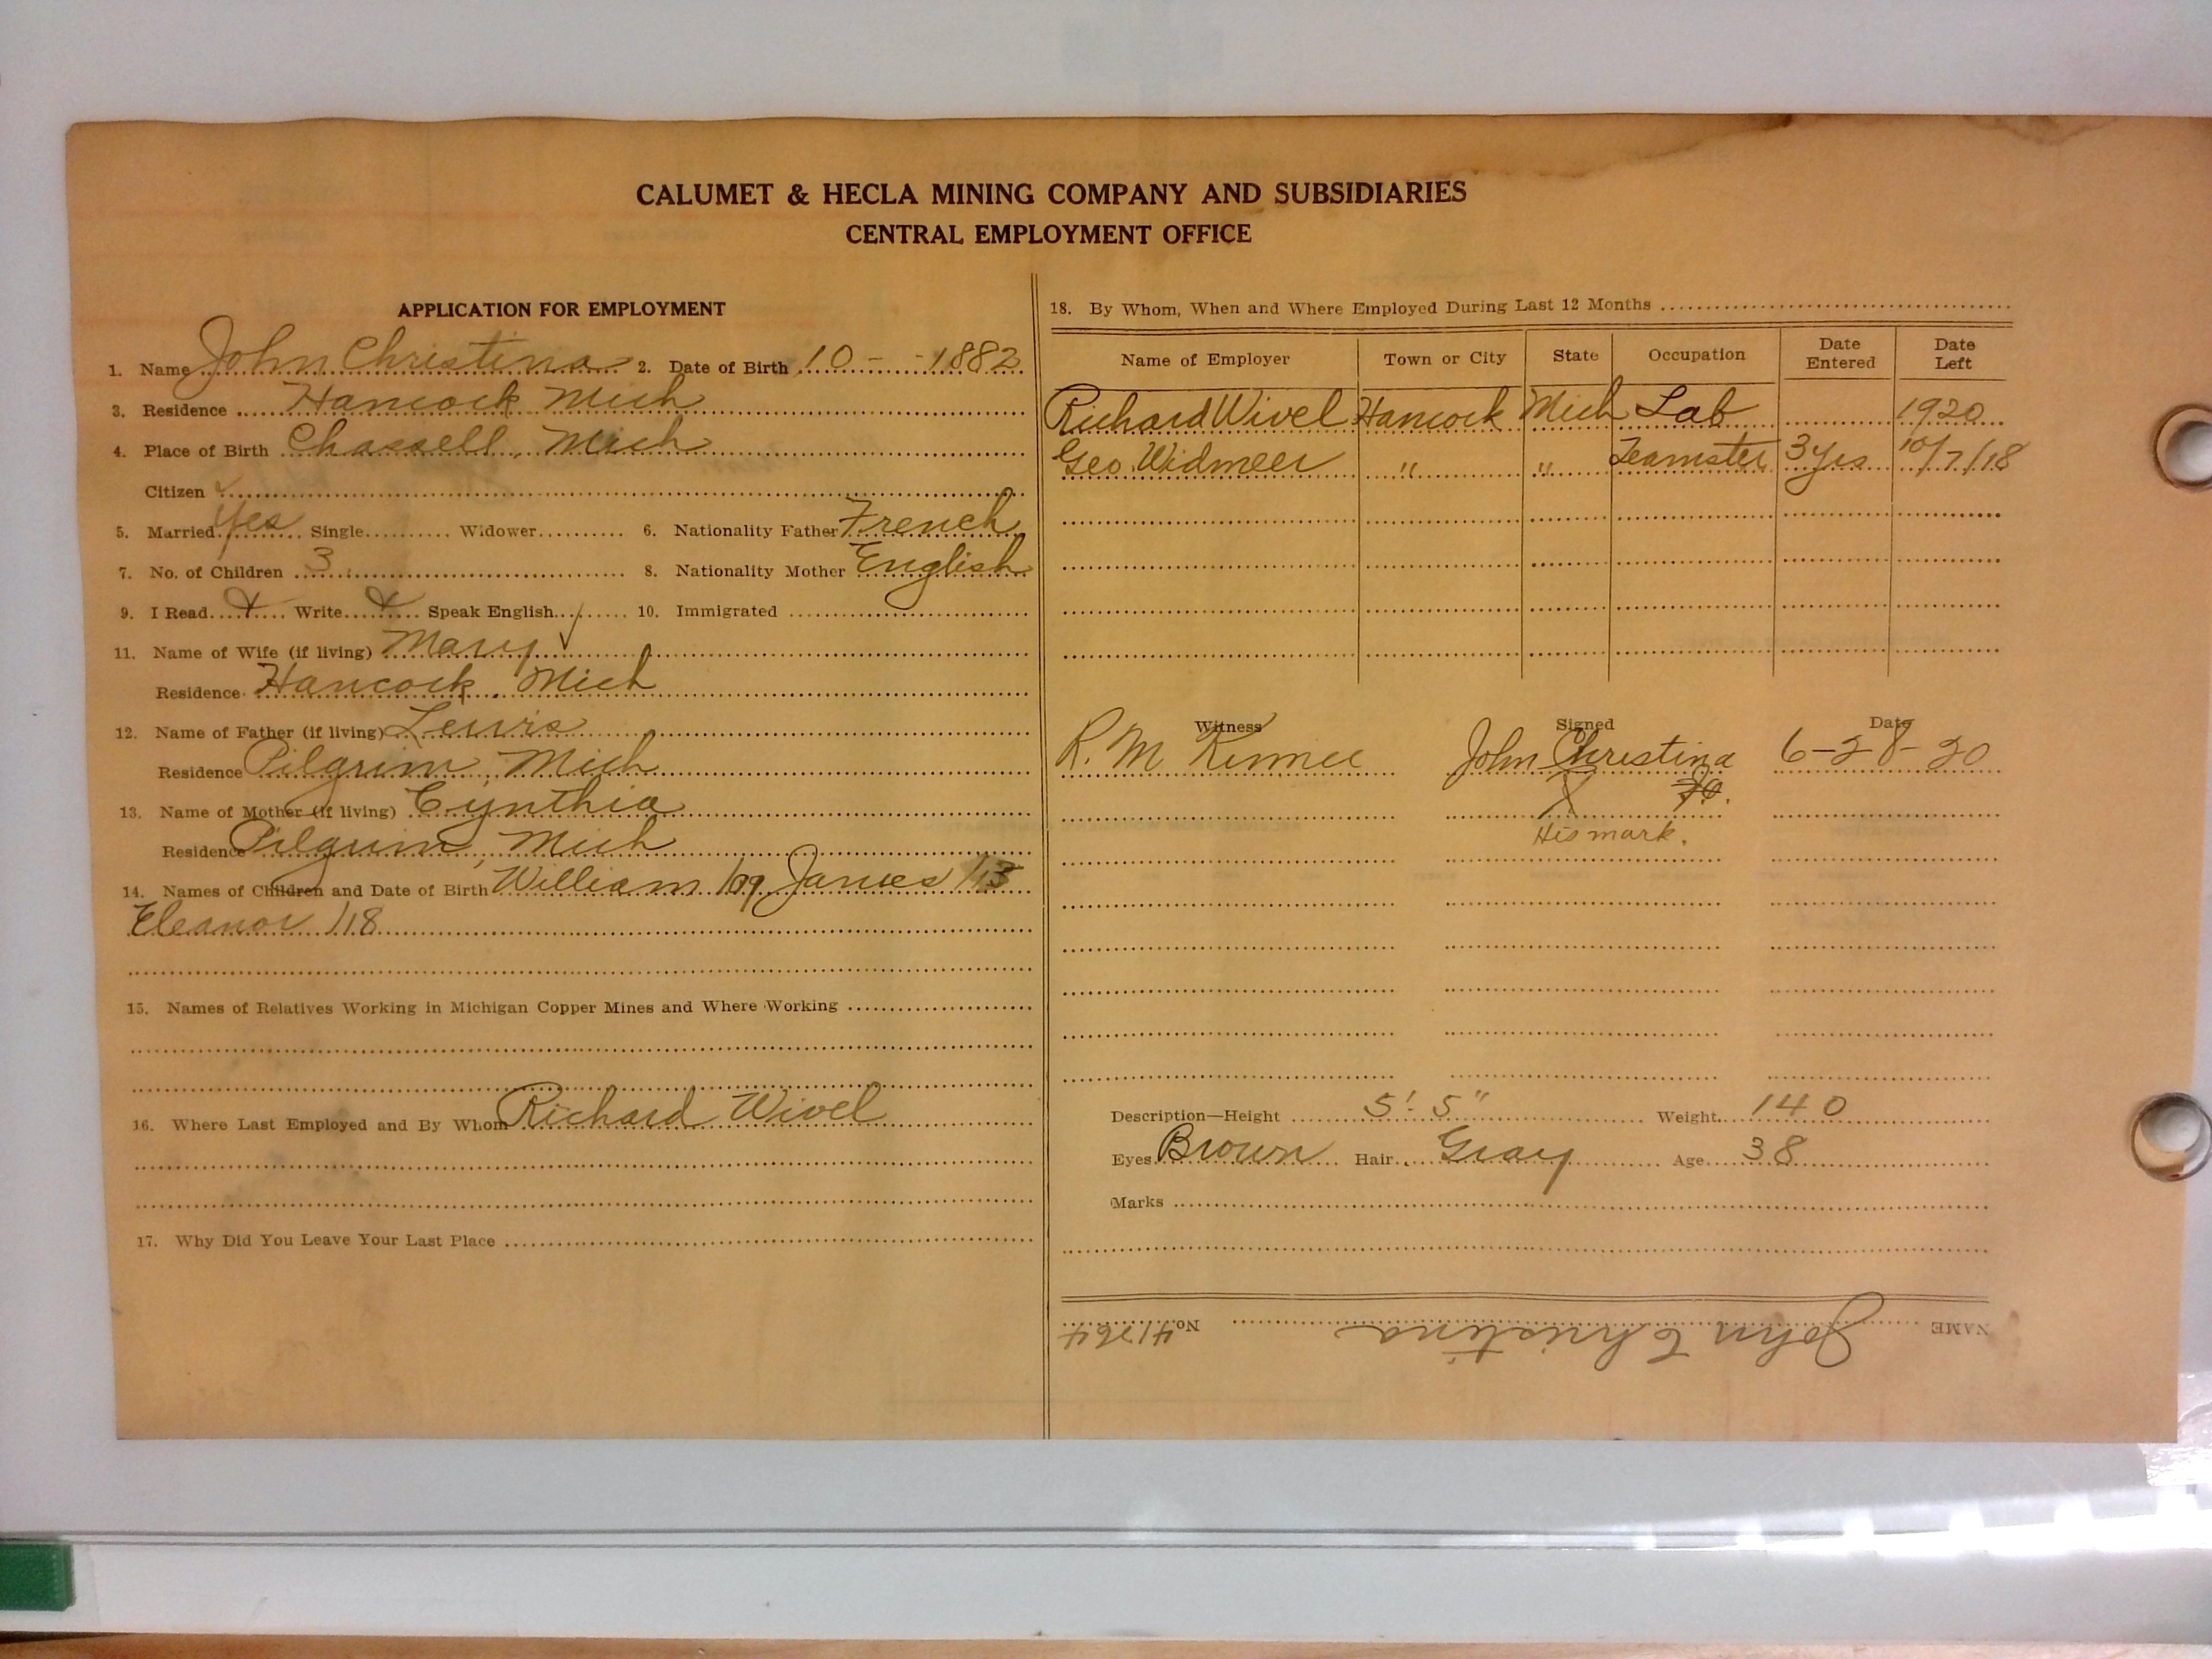 CALUMET & HECLA MINING COMPANY AND SUBSIDIARIES
CENTRAL EMPLOYMENT OFFICE
APPLICATION FOR EMPLOYMENT
1. Name John Christina 2. Date of Birth 10 - - 1882
3. Residence Hancock Mich
4. Place of Birth Chassell, Mich
Citizen
5. Married yes Single Widower 6. Nationality Father French
7. No. of Children 3 8. Nationality Mother English
9. I Read X Write X Speak English ✓ 10. Immigrated
11. Name of Wife (if living) Mary
Residence Hancock, Mich
12. Name of Father (if living) Lewis
Residence Pilgrim, Mich
13. Name of Mother (if living) Cynthia
Residence Pilgrim, Mich
14. Names of Children and Date of Birth William /09 James /13
Eleanor /18
15. Names of Relatives Working in Michigan Copper Mines and Where Working
16. Where Last Employed and By Whom Richard Wivel
17. Why Did You Leave Your Last Place
18. By Whom, When and Where Employed During Last 12 Months
Name of Employer Town or City State Occupation Date Entered Date Left
Richard Wivel Hancock Mich Lab 1920
Geo. Widmeer " " Teamster 3 yrs 10/7/18
Witness Signed Date
R. M. John Christina 6-28-20
X
His mark.
Description—Height 5'. 5" Weight 140
Eyes Brown Hair Gray Age 38
Marks
NAME John Christina No. 41764